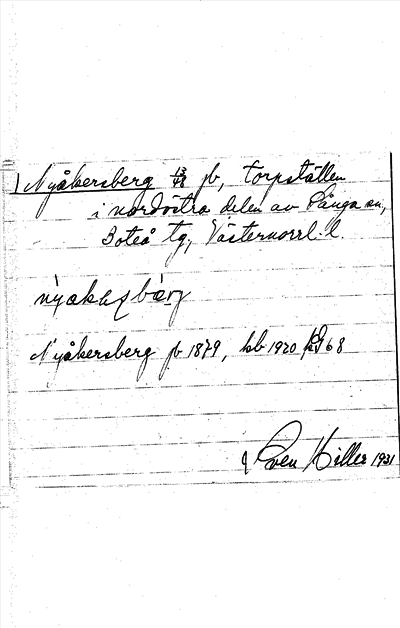 Nyåkersberg 13/48 jb, torpställen
i nordöstra delen av Långa sn,
Boteå tg, Västernorrl. l.
Nyåkersberg jb 1879, kb 1920
Sven Hiller 1931